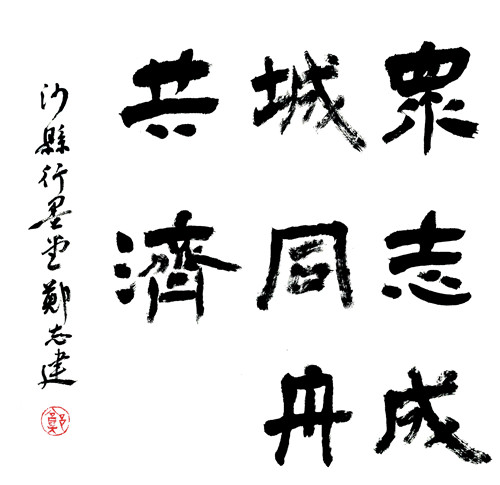 眾志成
城同舟
共濟
沙縣行墨堂鄭志建
鄭